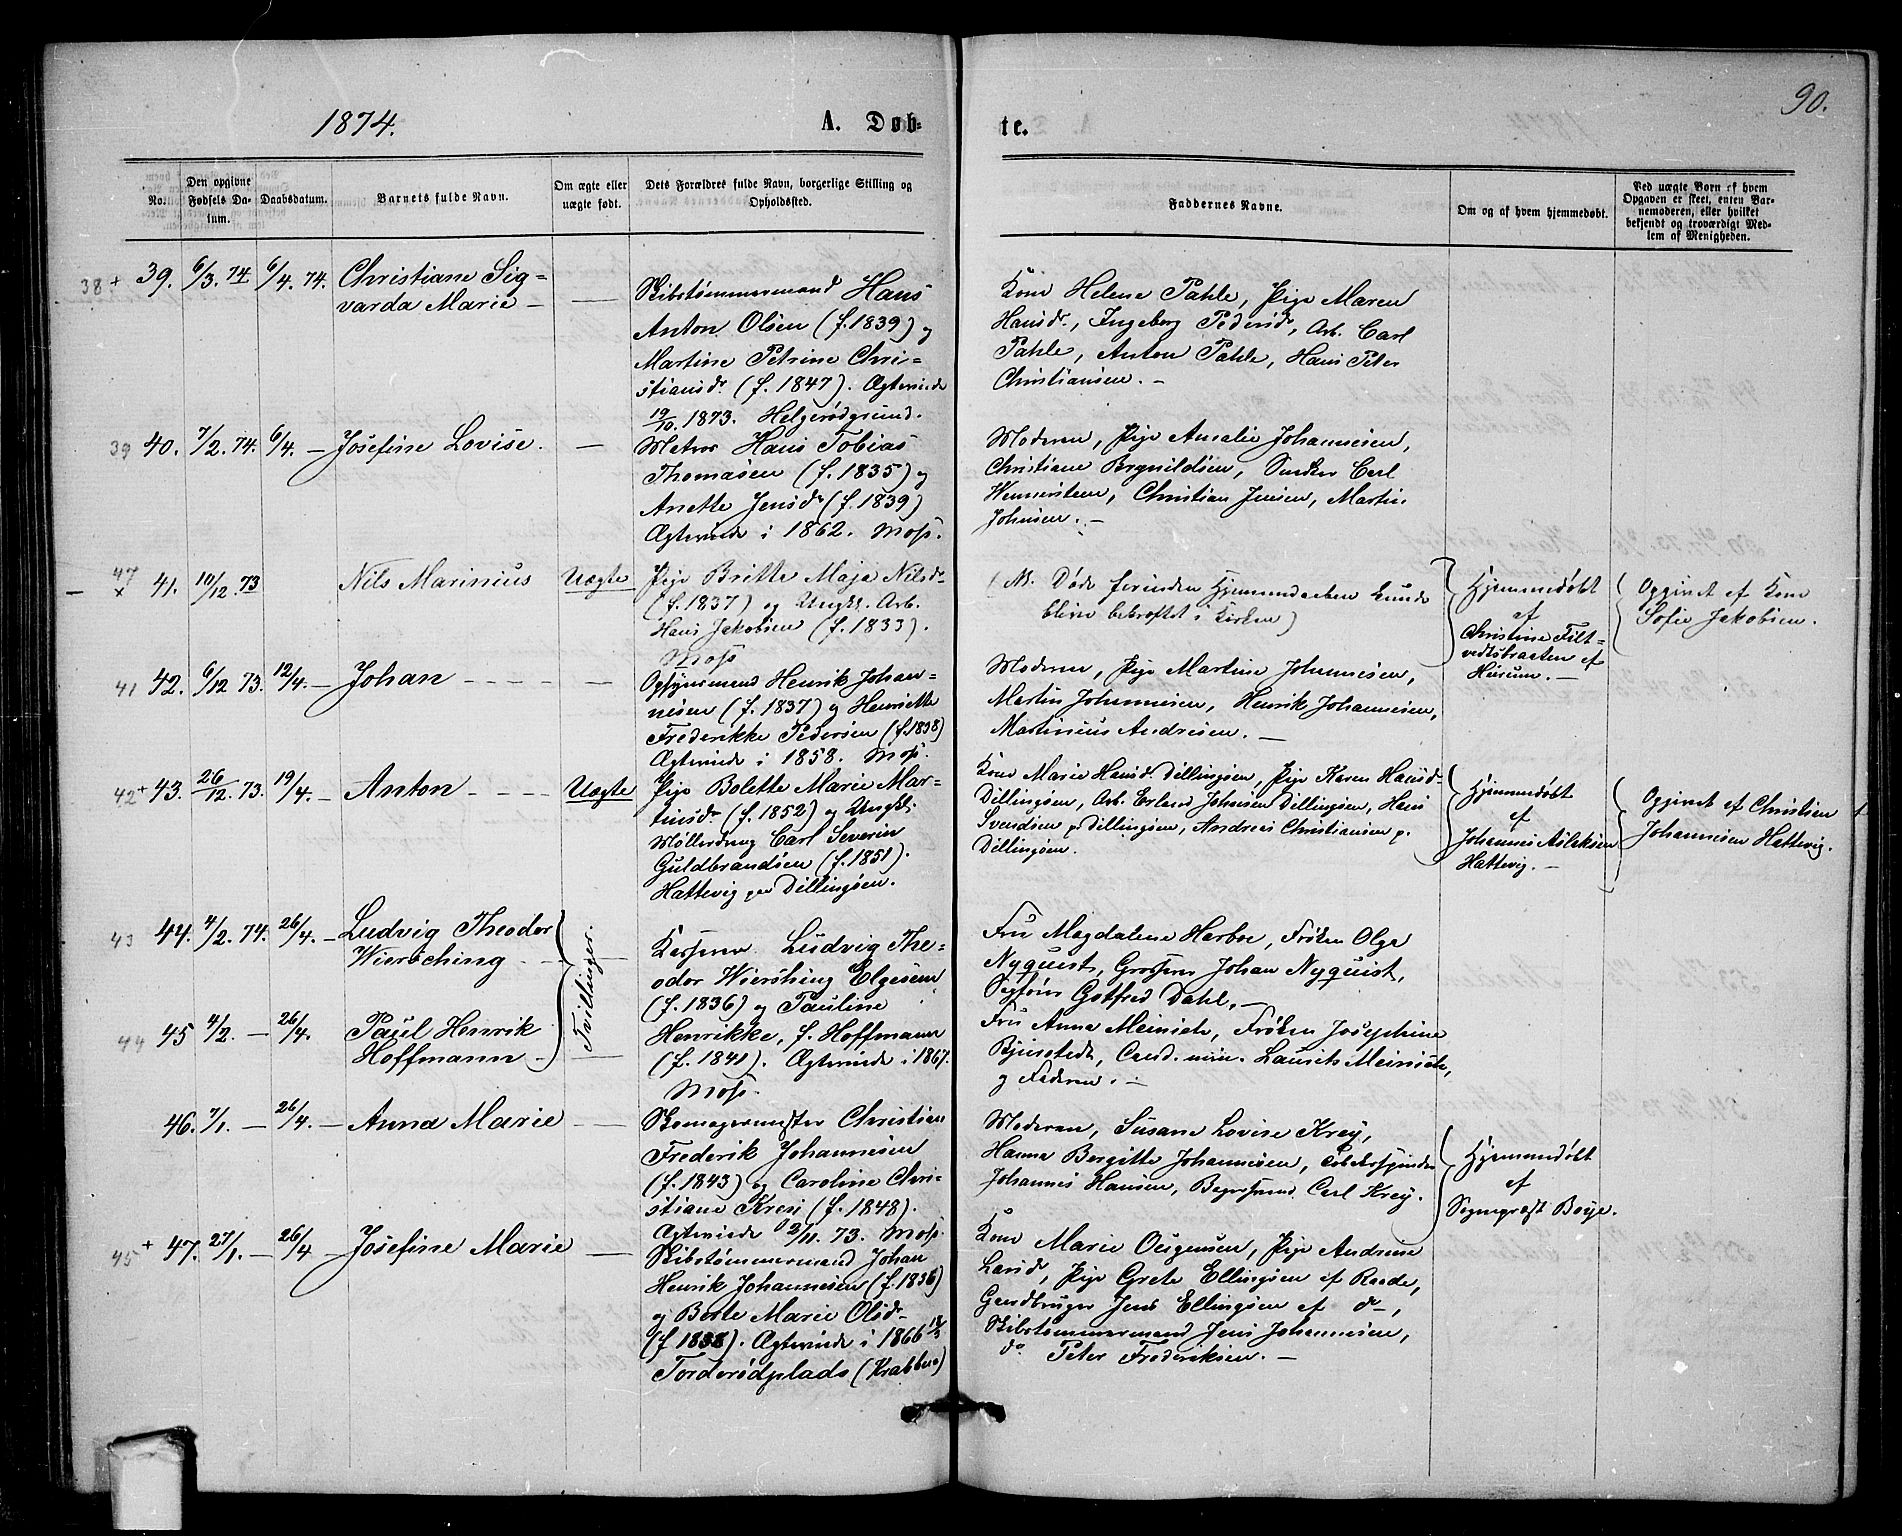 90.
1874.
A. Døb-
te.
No.
Den opgivne Fødsels Da-
tum.
Daabsdatum.
Barnets fulde Navn.
Om ægte eller
uægte født.
Dets Forældres fulde Navn, borgerlige Stilling og
Opholdssted.
Faddernes Navne.
Om og af hvem hjemmedøbt.
Ved uægte Børn af hvem
Opgaven er skeet, enten Bar-
nemoderen, eller hvilket
bekjendt og troværdigt Med-
lem af Menigheden.
38 + 39. 6/3. 74 6/4. 74. Christiane Sig=
varda Marie —
Skibstømmermand Hans
Anton Olsen (f. 1839) og
Martine Petrine Chri-
stiansdr (f. 1847). Ægteviede
19/10. 1873. Helgerødgrund.
Kone Helene Pahle, Pige Maren
Hansdr., Ingeborg Pedersdr, Arb. Carl
Pahle, Anton Pahle, Hans Peter
Christiansen. —
39 40. 7/2. 74. 6/4. — Josefine Lovise. —
Hans Tobias
Thomasen (f. 1835) og
Anette Jensdr (f. 1839)
Ægteviede i 1862. Moss.
Moderen, Pige Amalie Johannesen,
Christiane Brynildsen, Snedker Carl
Wennersteen, Christian Jensen, Martin
Johnsen. —
47 x 41. 10/12. 73 Nils Marinius Uægte
Pige Britte Maja Nilsdr
(f. 1837) og Ungk. Arb.
Hans Jakobsen (f. 1833).
Moss
(N. Døde forinden Hjemmedaaben kunde
blive bekræftet i Kirken)
Hjemmedøbt
af
Christine Filt-
vedtbraaten af
Hurum. —
Opgivet af Kone
Sofie Jakobsen.
41 42. 6/12. 73. 12/4. — Johan - - - - —
Opsynsmand Henrik Johan-
nesen (f. 1837) og Henriette
Frederikke Pedersen (f. 1838)
Ægteviede i 1858. Moss.
Moderen, Pige Martine Johannesen,
Martin Johannesen, Henrik Johannesen,
Martinius Andresen. —
42 + 43. 26/12. 73. 19/4. — Anton - - - - Uægte
Pige Bolette Marie Mar-
tinsdr. (f. 1852) og Ungk.
Møllerdreng Carl Severin
Guldbrandsen (f. 1851).
Hattevig paa Dillingøen.
Kone Marie Hansd. Dillingøen, Pige Karen Hansd-
Dillingøen, Arb. Erland Johnsen Dillingøen, Hans
Svendsen p. Dillingøen, Andreas Christiansen p.
Dillingøen.
Hjemmedøbt
af
Johannes Aslaksen
Hattevig. —
Opgivet af Christian
Johannesen Hattevig.
43 44. 4/2. 74. 26/4. — Ludvig Theodor
Wiersching - -
Tvillinger.
Ludvig The-
odor Wiershing Elgesem
(f. 1836) og Pauline
Henrikke, f. Hoffmann
(f. 1841). Ægteviede i 1867.
Moss.
Fru Magdalene Herbre, Frøken Olga
Nyquist, Grosserer Johan Nyquist,
Gotfred Dahl. —
44 45 4/2. — 26/4. Paul Henrik
Hoffmann —
Fru Anna Meinich, Frøken Josephine
Bjerstedt, Cand. min. Laurits Meinich,
og Faderen. —
46. 7/1. — 26/4. — Anna Marie —
Skomagermester Christian
Frederik Johannesen
(f. 1843) og Caroline Chri-
stiane Krei (f. 1848).
Ægteviede 2/11. 73. Moss.
Moderen, Susane Lovise Krey,
Hanna Bergitte Johannesen,
Johannes Hansen, Carl Krey.
Hjemmedøbt
af
Sogneprest Boye.
45 + 47. 27/1. — 26/4 — Josefine Marie —
Skibstømmermand Johan
Henrik Johannesen (f. 1836)
og Berte Marie Olsd-
(f 1838). Ægteviede i 1866
Torderødplads (Krabbene)
Kone Marie Pige Andrine
Larsd, Pige Grete Ellingsen af Raade,
Gaardbruger Jens Ellingsen af do—,
Skibstømmermand Jens Johannesen,
do. Peter Frederiksen. —